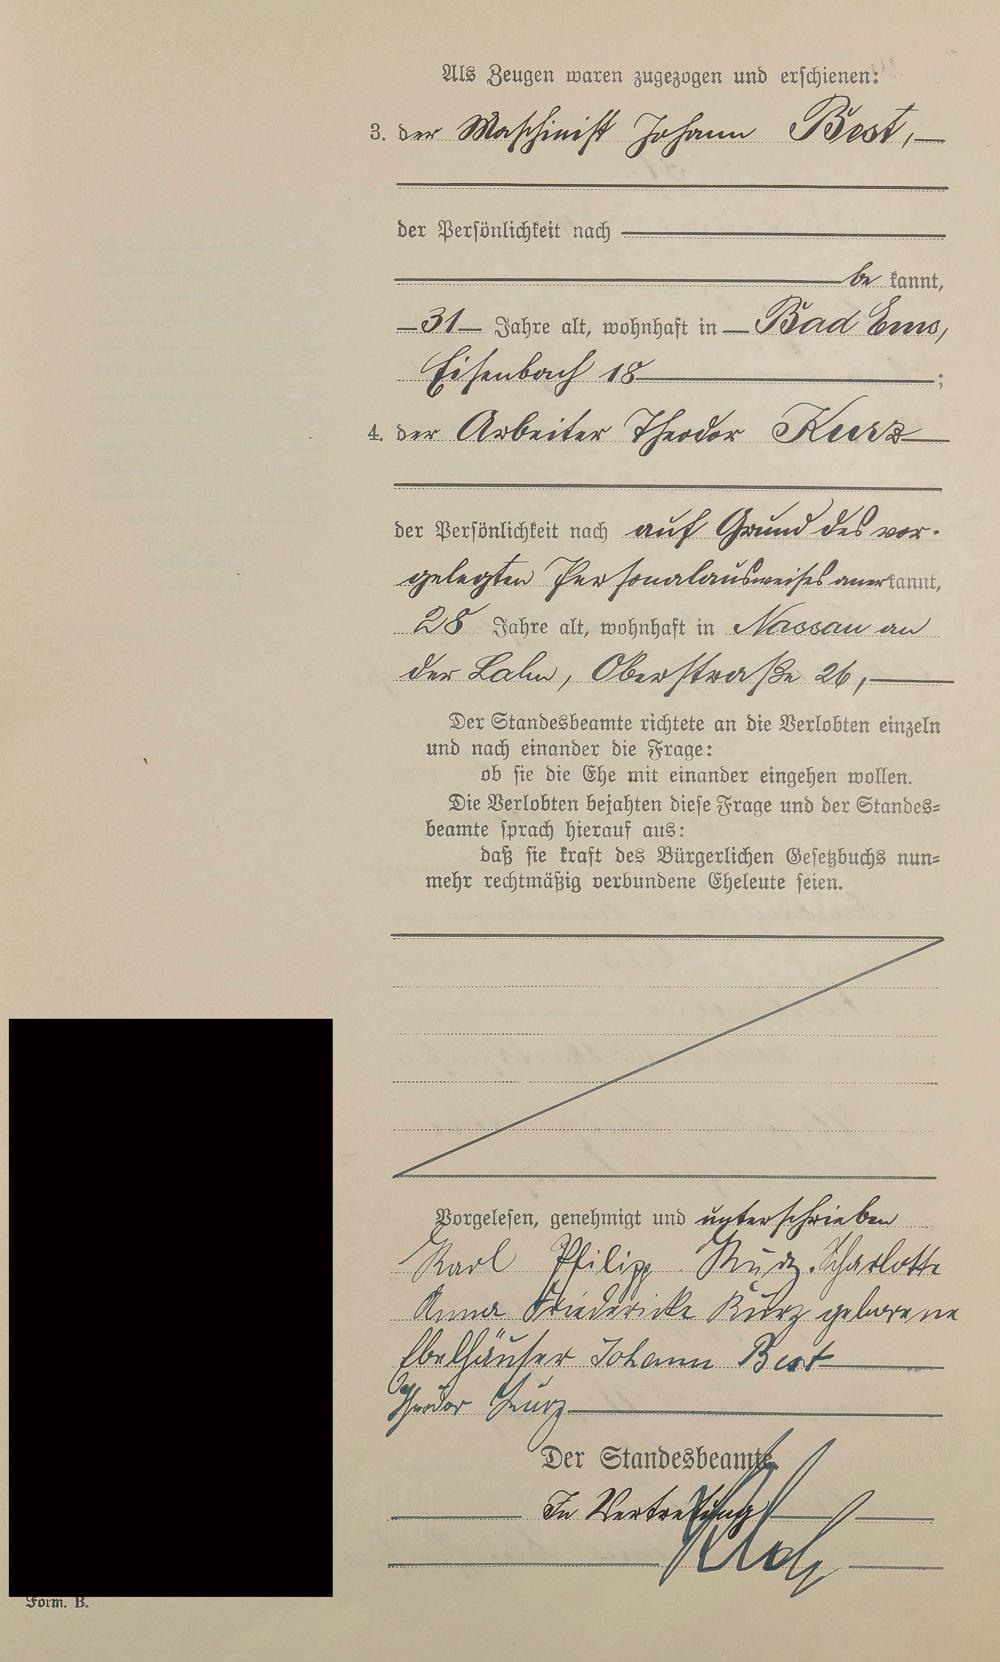 Als Zeugen waren zugezogen und erschienen:
3. der Maschinist Johann Best,
der Persönlichkeit nach
be kannt,
31 Jahre alt, wohnhaft in Bad Ems,
Eisenbach 18 ;
4. der Arbeiter Theodor Kurz
der Persönlichkeit nach auf Grund des vor-
gelegten Personalausweises anerkannt,
28 Jahre alt, wohnhaft in Nassau an
der Lahn, Oberstraße 26,
Der Standesbeamte richtete an die Verlobten einzeln
und nach einander die Frage:
ob sie die Ehe mit einander eingehen wollen.
Die Verlobten bejahten diese Frage und der Standes=
beamte sprach hierauf aus:
daß sie kraft des Bürgerlichen Gesetzbuchs nun=
mehr rechtmäßig verbundene Eheleute seien.
Vorgelesen, genehmigt und unterschrieben
Karl Philipp Kurz. Scharlotte
Anna Friedericke Kurz geborene
Ebelhäuser Johann Best
Theodor Kurz
Der Standesbeamte
In Vertretung
Form. B.